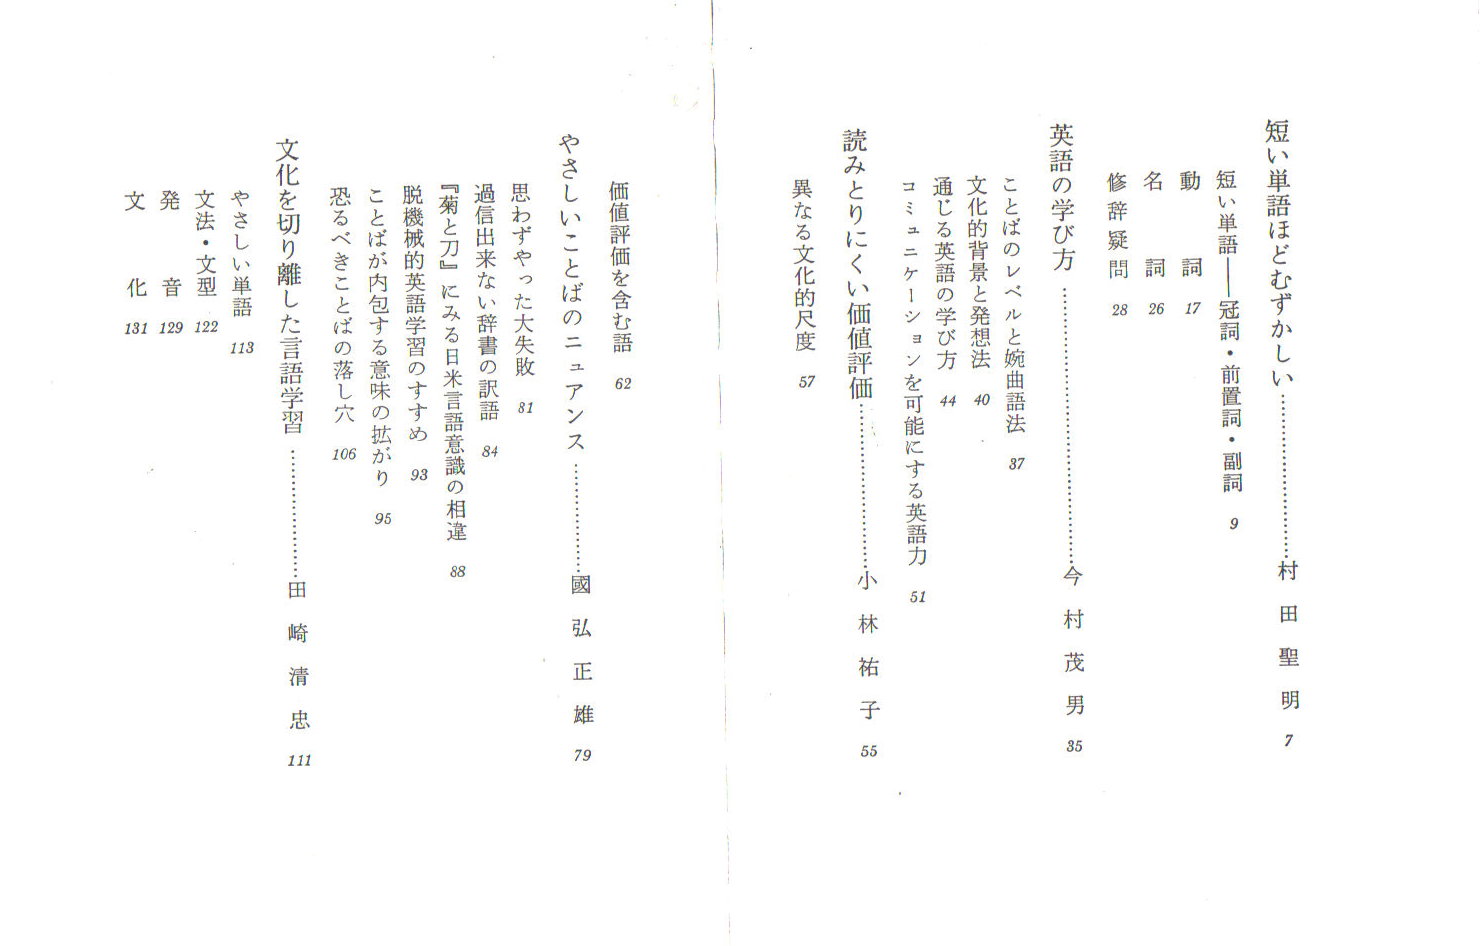 短い単語ほどむずかしい……………………村田聖明 7
短い単語――冠詞・前置詞・副詞 9
動詞 17
名詞 26
修辞疑問 28
英語の学び方……………………………………今村茂男 35
ことばのレベルと婉曲語法 37
文化的背景と発想法 40
通じる英語の学び方 44
コミュニケーションを可能にする英語力 51
読みとりにくい価値評価……………………小林祐子 55
異なる文化的尺度 57
価値評価を含む語 62
やさしいことばのニュアンス………………國弘正雄 79
思わずやった大失敗 81
過信出来ない辞書の訳語 84
『菊と刀』にみる日米言語意識の相違 88
脱機械的英語学習のすすめ 93
ことばが内包する意味の拡がり 95
恐るべきことばの落し穴 106
文化を切り離した言語学習…………………田崎清忠 111
やさしい単語 113
文法・文型 122
発音 129
文化 131